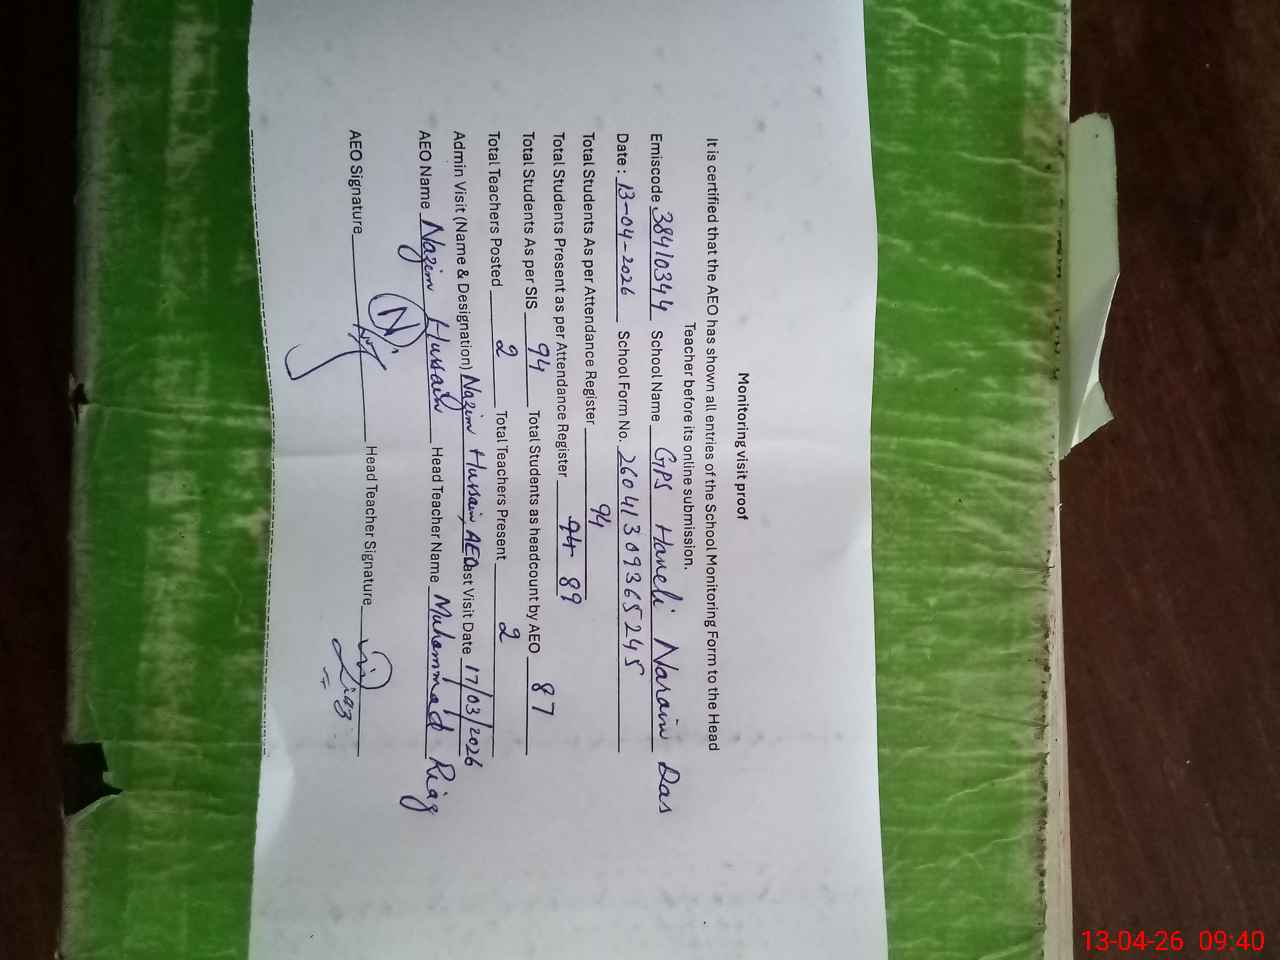 Monitoring visit proof
It is certified that the AEO has shown all entries of the School Monitoring Form to the Head
Teacher before its online submission.
Emiscode 38410344 School Name GPS Haveli Narain Das
Date: 13-04-2026 School Form No. 26041309365245
Total Students As per Attendance Register 94
Total Students Present as per Attendance Register 94 89
Total Students As per SIS 94 Total Students as headcount by AEO 87
Total Teachers Posted 2 Total Teachers Present 2
Admin Visit (Name & Designation) Nazim Hussain, AEO Last Visit Date 17/03/2026
AEO Name Nazim Hussain Head Teacher Name Muhammad Riaz
AEO Signature Head Teacher Signature Riaz
13-04-26 09:40